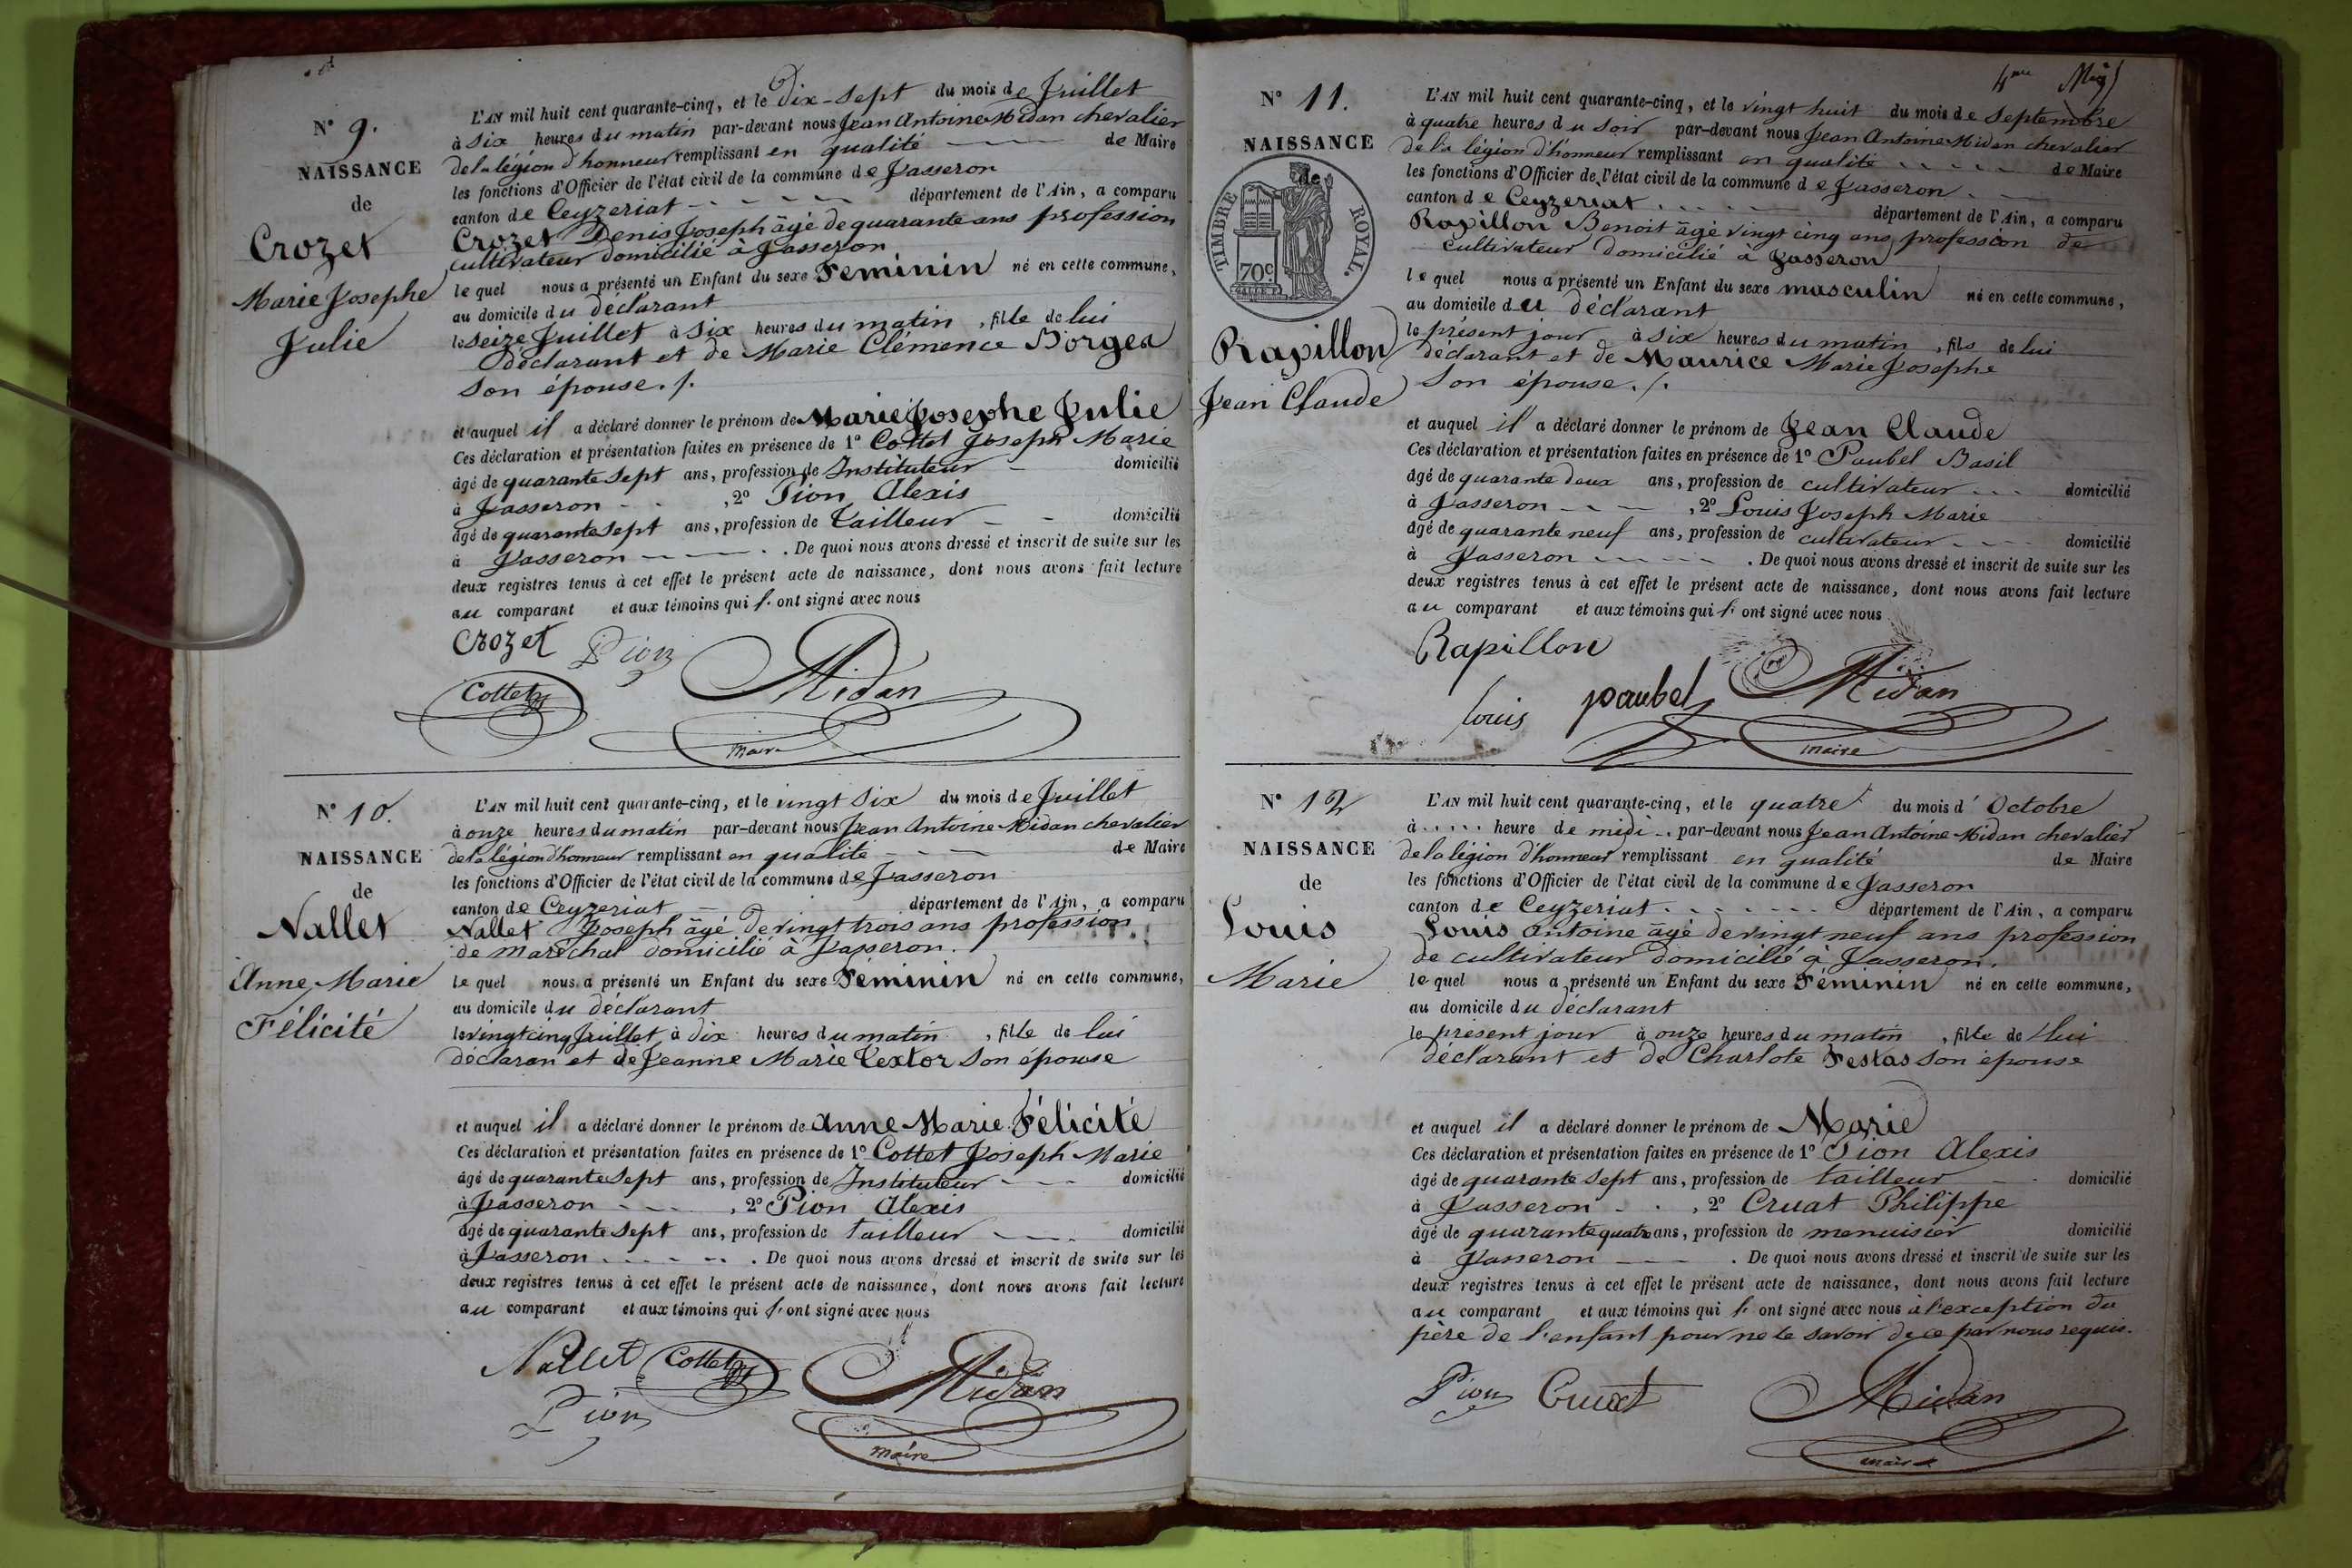 N° 9.
NAISSANCE
de
Crozet
Marie Josephe
Julie
L'AN mil huit cent quarante-cinq, et le Dix-Sept du mois de Juillet
à Six heures du matin par-devant nous Jean Antoine Midan chevalier
de la légion d'honneur remplissant en qualité de Maire
les fonctions d'Officier de l'état civil de la commune de Jasseron
canton de Ceyzeriat département de l'Ain, a comparu
Crozet Denis Joseph âgé de quarante ans profession
cultivateur domicilié à Jasseron
le quel nous a présenté un Enfant du sexe Feminin né en cette commune,
au domicile du déclarant
le Seize Juillet à Six heures du matin, fille de lui
Déclarant et de Marie Clémence Borges
Son épouse. /.
et auquel il a déclaré donner le prénom de Marie Josephe Julie
Ces déclaration et présentation faites en présence de 1° Cottet Joseph Marie
âgé de quarante Sept ans, profession de Instituteur domicilié
à Jasseron , 2° Pion Alexis
âgé de quarante Sept ans, profession de Tailleur domicilié
à Jasseron . De quoi nous avons dressé et inscrit de suite sur les
deux registres tenus à cet effet le présent acte de naissance, dont nous avons fait lecture
au comparant et aux témoins qui l'ont signé avec nous
Crozet Pion Midan
Cottet
maire
N° 10.
NAISSANCE
de
Nallet
Anne Marie
Félicité
L'AN mil huit cent quarante-cinq, et le vingt Six du mois de Juillet
à onze heures du matin par-devant nous Jean Antoine Midan chevalier
de la légion d'honneur remplissant en qualité de Maire
les fonctions d'Officier de l'état civil de la commune de Jasseron
canton de Ceyzeriat département de l'Ain, a comparu
Nallet Joseph âgé de vingt trois ans profession
de maréchal domicilié à Jasseron.
le quel nous a présenté un Enfant du sexe Féminin né en cette commune,
au domicile du déclarant
le vingt cinq Juillet à Dix heures du matin, fille de lui
déclaran et de Jeanne Marie Textor Son épouse
et auquel il a déclaré donner le prénom de Anne Marie Félicité
Ces déclaration et présentation faites en présence de 1° Cottet Joseph Marie
âgé de quarante Sept ans, profession de Instituteur domicilié
à Jasseron , 2° Pion Alexis
âgé de quarante Sept ans, profession de tailleur domicilié
à Jasseron . De quoi nous avons dressé et inscrit de suite sur les
deux registres tenus à cet effet le présent acte de naissance, dont nous avons fait lecture
au comparant et aux témoins qui l'ont signé avec nous
Nallet Cottet Midan
Pion
maire
4me
N° 11.
NAISSANCE
de
TIMBRE ROYAL.
70c
Rapillon
Jean Claude
L'AN mil huit cent quarante-cinq, et le vingt huit du mois de Septembre
à quatre heures du soir par-devant nous Jean Antoine Midan chevalier
de la légion d'honneur remplissant en qualité de Maire
les fonctions d'Officier de l'état civil de la commune de Jasseron
canton de Ceyzeriat département de l'Ain, a comparu
Rapillon Benoit âgé vingt cinq ans profession de
Cultivateur domicilié à Jasseron
le quel nous a présenté un Enfant du sexe masculin né en cette commune,
au domicile du déclarant
le présent jour à six heures du matin, fils de lui
déclarant et de Maurice Marie Josephe
Son épouse. /.
et auquel il a déclaré donner le prénom de Jean Claude
Ces déclaration et présentation faites en présence de 1° Paubel Basil
âgé de quarante deux ans, profession de cultivateur domicilié
à Jasseron , 2° Louis Joseph Marie
âgé de quarante neuf ans, profession de cultivateur domicilié
à Jasseron . De quoi nous avons dressé et inscrit de suite sur les
deux registres tenus à cet effet le présent acte de naissance, dont nous avons fait lecture
au comparant et aux témoins qui l'ont signé avec nous
Rapillon
louis paubel Midan
maire
N° 12
NAISSANCE
de
Louis
Marie
L'AN mil huit cent quarante-cinq, et le quatre du mois d' Octobre
à heure de midi par-devant nous Jean Antoine Midan chevalier
de la légion d'honneur remplissant en qualité de Maire
les fonctions d'Officier de l'état civil de la commune de Jasseron
canton de Ceyzeriat département de l'Ain, a comparu
Louis Antoine âgé de vingt neuf ans profession
de cultivateur domicilié à Jasseron.
le quel nous a présenté un Enfant du sexe Féminin né en cette commune,
au domicile du déclarant
le présent jour à onze heures du matin, fille de lui
déclarant et de Charlote Festas Son épouse
et auquel il a déclaré donner le prénom de Marie
Ces déclaration et présentation faites en présence de 1° Pion Alexis
âgé de quarante Sept ans, profession de tailleur domicilié
à Jasseron , 2° Cruat Philippe
âgé de quarante quatre ans, profession de menuisier domicilié
à Jasseron . De quoi nous avons dressé et inscrit de suite sur les
deux registres tenus à cet effet le présent acte de naissance, dont nous avons fait lecture
au comparant et aux témoins qui l'ont signé avec nous à l'exception du
père de l'enfant pour ne le savoir de ce par nous requis.
Pion Cruat Midan
maire